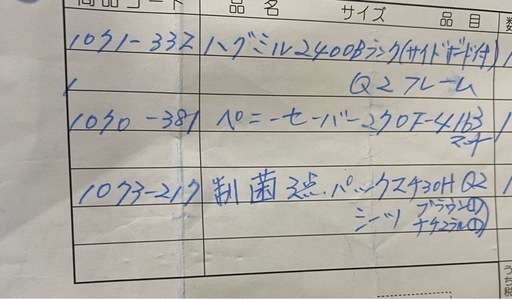 商品コード 品名 サイズ 品目 数
1071-332 ハグミル2400Bランク(サイドボード付) 1
Q2フレーム
1070-381 ペニーセーバー270F-4 1b3 1
マーナ
1073-217 制菌3点パックス430H Q2 1
シーツ ブラウン①
ナチュラル①
うち税